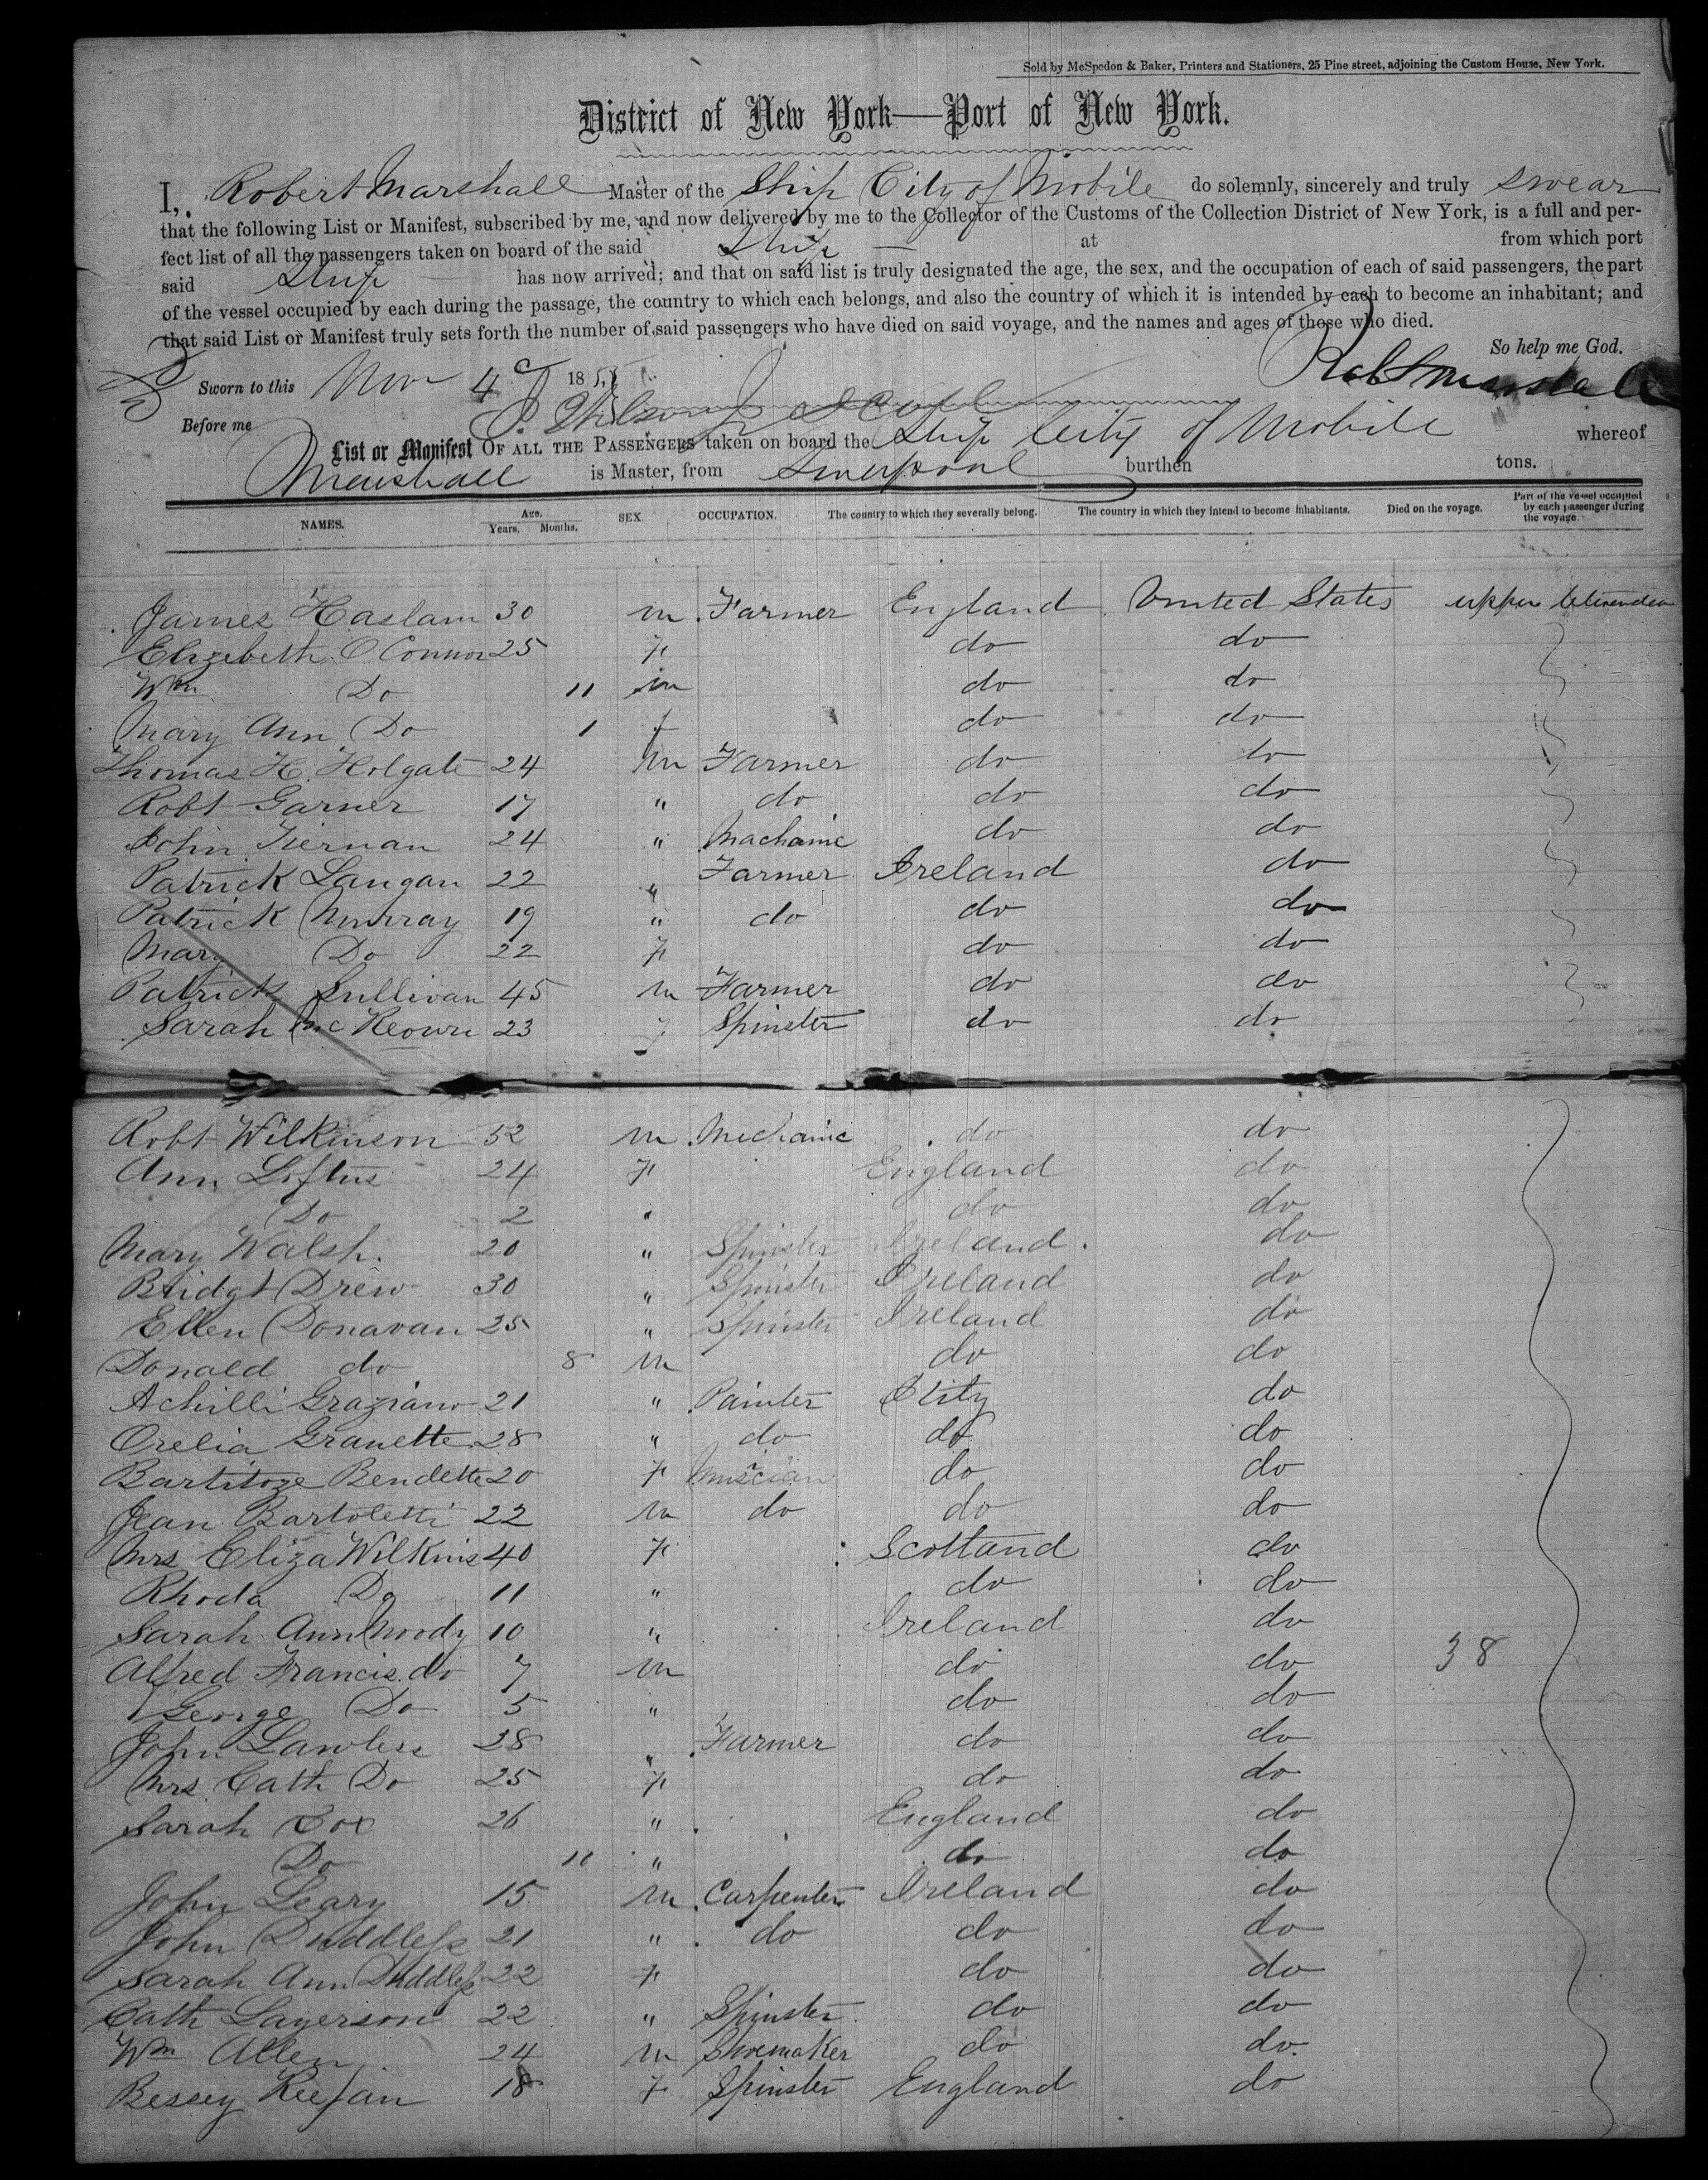 Sold by McSpedon & Baker, Printers and Stationers, 25 Pine street, adjoining the Custom House, New York.
District of New York—Port of New York.
I, Robert Marshall Master of the Ship City of Mobile do solemnly, sincerely and truly swear
that the following List or Manifest, subscribed by me, and now delivered by me to the Collector of the Customs of the Collection District of New York, is a full and per-
fect list of all the passengers taken on board of the said Ship at from which port
said Ship has now arrived; and that on said list is truly designated the age, the sex, and the occupation of each of said passengers, the part
of the vessel occupied by each during the passage, the country to which each belongs, and also the country of which it is intended by each to become an inhabitant; and
that said List or Manifest truly sets forth the number of said passengers who have died on said voyage, and the names and ages of those who died.
So help me God.
Sworn to this Nov 4 185 Robt Marshall
Before me
List or Manifest OF ALL THE PASSENGERS taken on board the Ship City of Mobile whereof
Marshall is Master, from Liverpool burthen tons.
NAMES. Age. Years. Months. SEX. OCCUPATION. The country to which they severally belong. The country in which they intend to become inhabitants. Died on the voyage. Part of the vessel occupied by each passenger during the voyage.
James Haslam 30 m Farmer England United States upper
Elizebeth O Connor 25 F do do
Wm Do 11 m do do
Mary Ann Do 1 f do do
Thomas H. Holgate 24 m Farmer do do
Robt Garner 17 " do do do
John Tiernan 24 " Machanic do do
Patrick Langan 22 " Farmer Ireland do
Patrick Murray 19 " do do do
Mary Do 22 F do do
Patrick Sullivan 45 m Farmer do do
Sarah McKeown 23 f Spinster do do
Robt Wilkinson 52 m Mechanic do do
Ann Loftus 24 F England do
Do 2 " do do
Mary Walsh. 20 " Spinster Ireland. do
Bridgt Drew 30 " Spinster Ireland do
Ellen Donavan 25 " Spinster Ireland do
Donald do 8 m do do
Achilli Graziano 21 " Painter Itity do
Orelia Granette 28 " do do do
Bartitoze Bendette 20 F Muscian do do
Jean Bartoletti 22 m do do do
Mrs Eliza Wilkins 40 F Scotland do
Rhoda Do 11 " do do
Sarah Ann Moody 10 " Ireland do
Alfred Francis do 7 m do do 38
George Do 5 " do do
John Lawless 28 " Farmer do do
Mrs Cath Do 25 F do do
Sarah Cox 26 " England do
Do 11 " do do
John Leary 15 m Carpenter Ireland do
John Duddless 21 " do do do
Sarah Ann Duddless 22 F do do
Cath Layerson 22 " Spinster do do
Wm Allen 24 m Shoemaker do do
Bessey Keefan 18 F Spinster England do